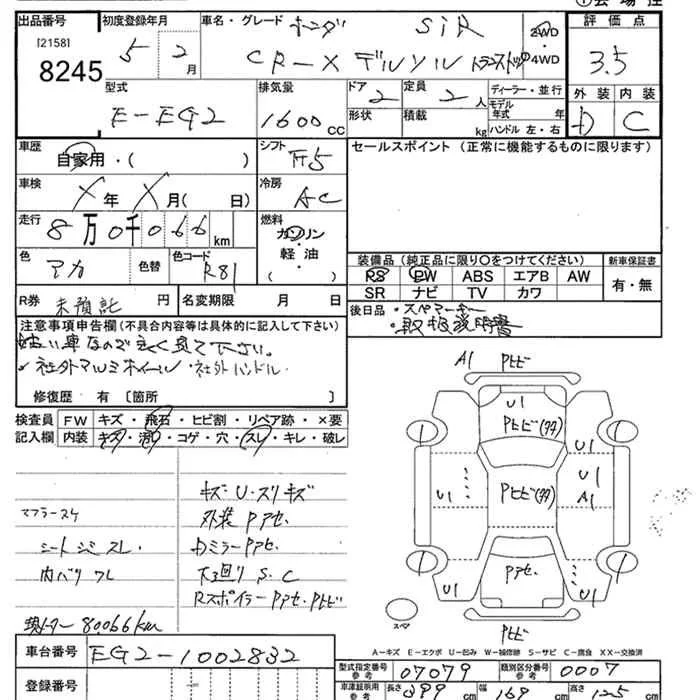 ①会場控
出品番号 初度登録年月 車名・グレード ホンダ SiR 2WD 評価点
[2158] 8245 5 2月 CR-Xデルソル トランストップ ・4WD 3.5
型式 排気量 ドア 2 定員 2人 ディーラー・並行 外装 内装
E-EG2 1600cc 形状 積載 kg モデル年式 年 D C
ハンドル 左・右
車歴 シフト F5 セールスポイント (正常に機能するものに限ります)
自家用・( )
車検 X年 X月( 日) 冷房 AC
走行 8万0千066km 燃料 ガソリン・軽油・( )
色 アカ 色替 色コード R81
装備品 (純正品に限り○をつけてください) 新車保証書
PS PW ABS エアB AW 有・無
SR ナビ TV カワ
R券 未預託 円 名変期限 月 日
後日品・スペアキー
・取扱説明書
注意事項申告欄(不具合内容等は具体的に記入して下さい)
古い車なので良く見て下さい。
社外アルミホイール・社外ハンドル
修復歴 有 〔箇所 〕
検査員記入欄 FW キズ・飛石・ヒビ割・リペア跡・×要
内装 キズ・汚レ・コゲ・穴・スレ・キレ・破レ
キズ・U・スリキズ
マフラースケ 外装Pアセ.
シートシミスレ. ドミラーPアセ.
内バリワレ 下廻りS.C
RスポイラーPアセ.Pヒビ
現メーター80066km
A1 Pヒビ
U1
Pヒビ(タタ)
1 U1 1
U1 Pヒビ(タタ) U1
A1
1 Pアセ. 1
U1 U1
Pヒビ
スペア
A-キズ E-エクボ U-凹み W-補修跡 S-サビ C-腐食 XX-交換済
車台番号 EG2-1002832
登録番号
型式指定番号 参考 07079 類別区分番号 参考 0007
車庫証明用 参考 長さ 399cm 幅 169cm 高さ 125cm